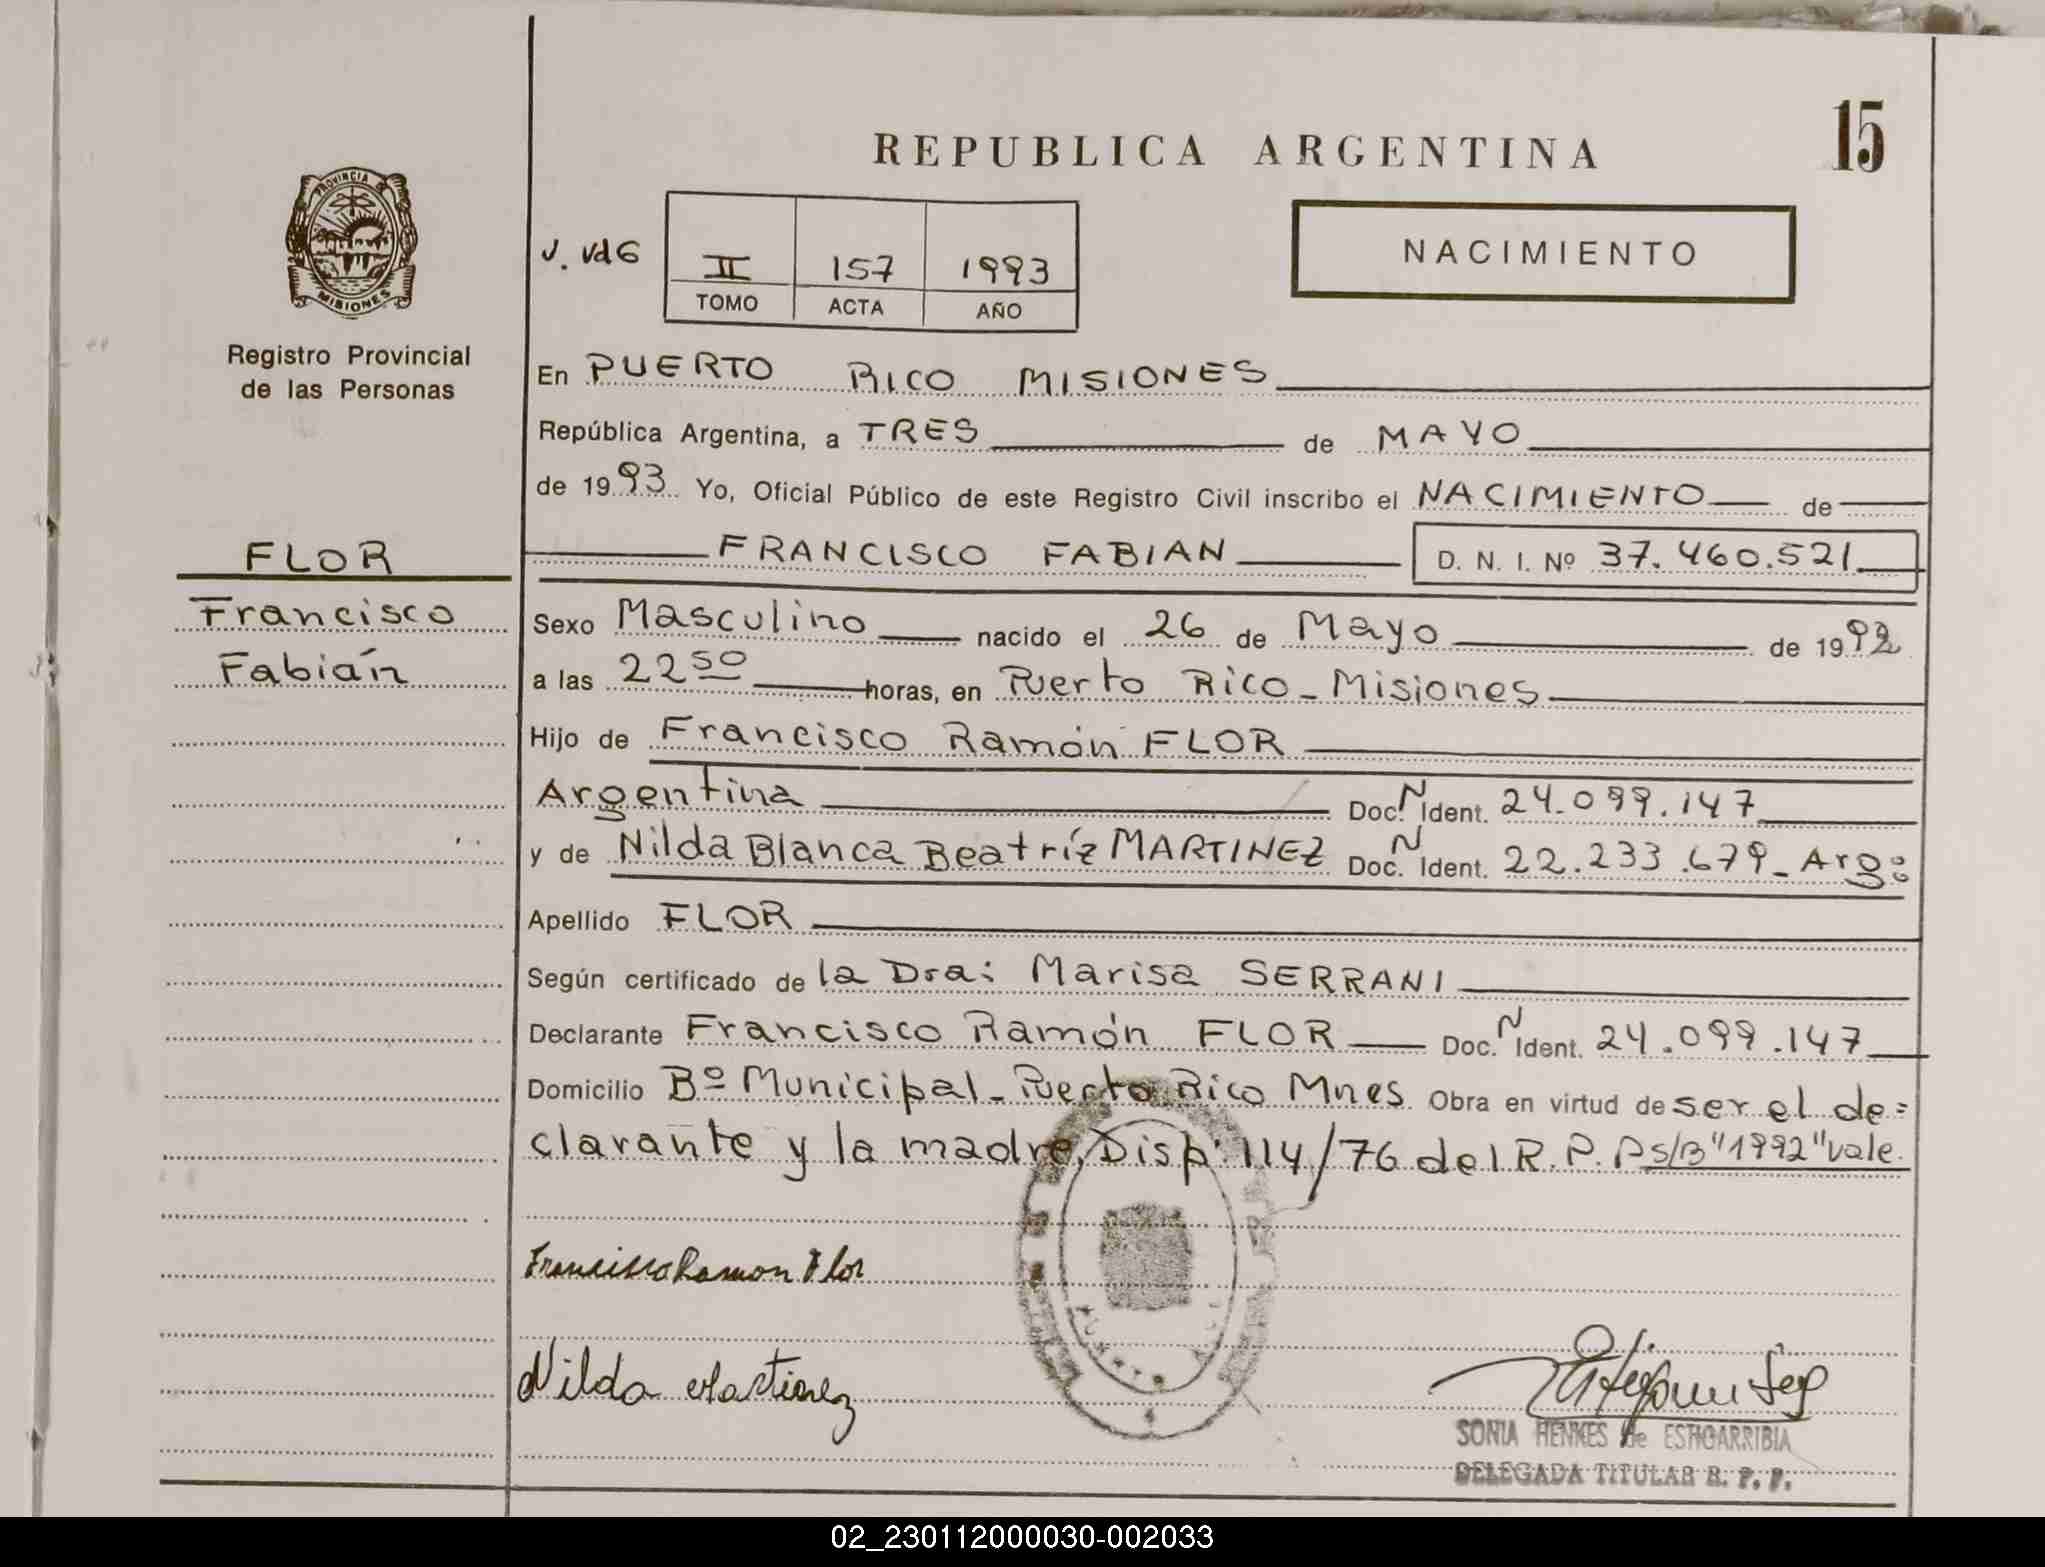 REPUBLICA ARGENTINA
15
PROVINCIA DE
MISIONES
Registro Provincial
de las Personas
II 157 1993
TOMO ACTA AÑO
NACIMIENTO
En PUERTO RICO MISIONES
República Argentina, a TRES de MAYO
de 1993 Yo, Oficial Público de este Registro Civil inscribo el NACIMIENTO de
FRANCISCO FABIAN D. N. I. Nº 37.460.521
FLOR
Francisco
Fabián
Sexo Masculino nacido el 26 de Mayo de 1992
a las 22 50 horas, en Puerto Rico - Misiones
Hijo de Francisco Ramón FLOR
Argentina Doc. N Ident. 24.099.147
y de Nilda Blanca Beatríz MARTINEZ Doc. N Ident. 22.233.679 - Arg:
Apellido FLOR
Según certificado de la Dra: Marisa SERRANI
Declarante Francisco Ramón FLOR Doc. N Ident. 24.099.147
Domicilio Bº Municipal - Puerto Rico Mnes Obra en virtud de ser el de=
clarante y la madre, Disp: 114/76 del R. P. P s/B "1992" vale.
Francisco Ramon Flor
Nilda Martinez
SONIA HENKES de ESTIGARRIBIA
DELEGADA TITULAR R. P. P.
02_230112000030-002033